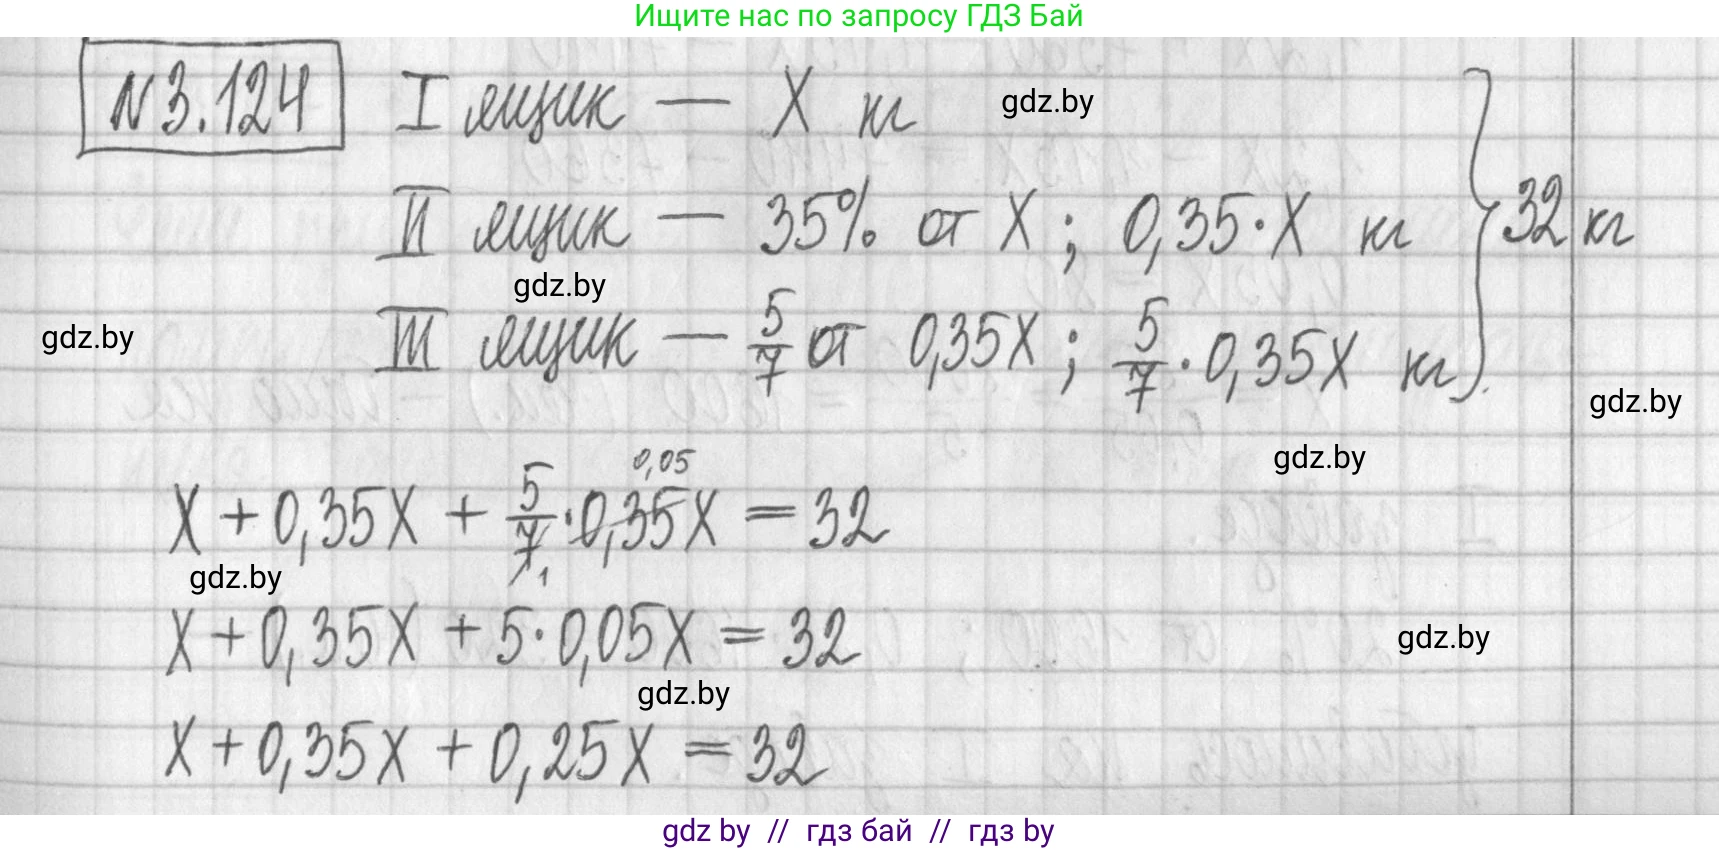 Ищите нас по запросу ГДЗ Бай
N3.124 I ящик — X кг gdz.by
II ящик — 35% от X; 0,35·X кг } 32 кг
gdz.by
gdz.by III ящик — 5/7 от 0,35X; 5/7 · 0,35X кг
gdz.by
gdz.by
0,05
X + 0,35X + 5/7 · 0,35X = 32
1
gdz.by
X + 0,35X + 5 · 0,05X = 32
gdz.by
gdz.by
X + 0,35X + 0,25X = 32
gdz by // гдз бай // гдз by